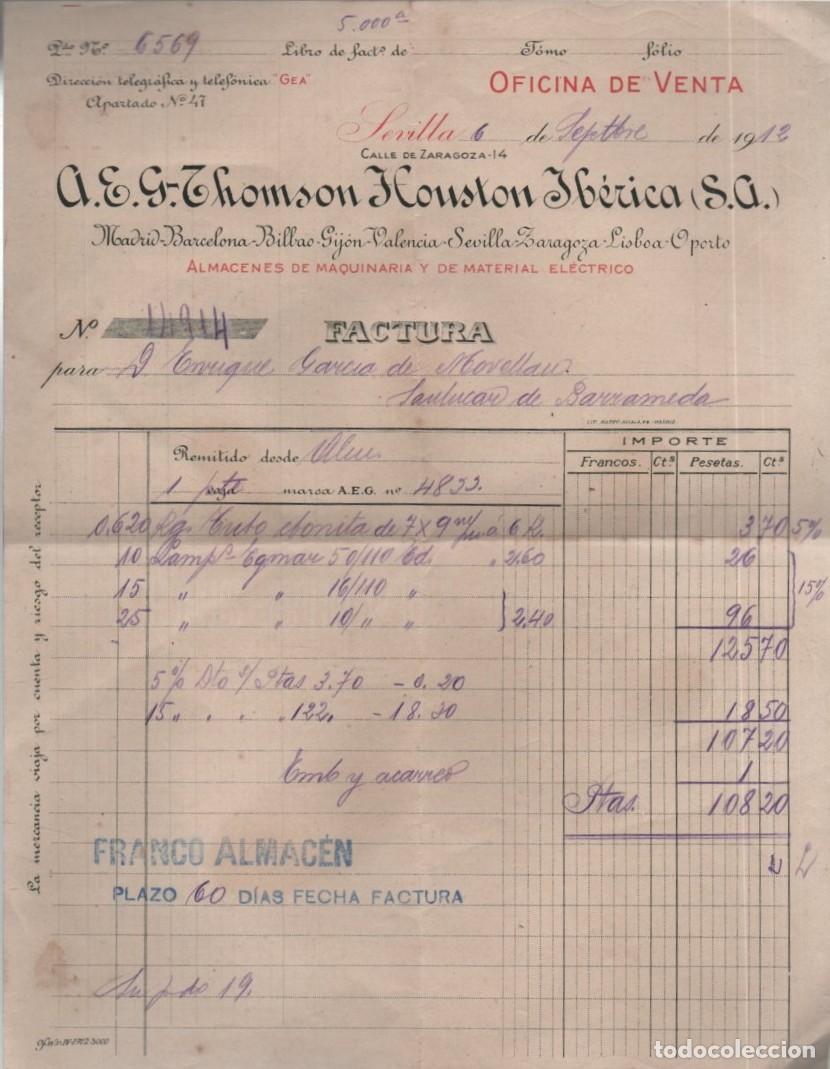 5.000a
Pdo. Nº 6569 Libro de factº de Tómo fólio
Dirección telegráfica y telefónica "GEA"
Apartado Nº 47
OFICINA DE VENTA
Sevilla 6 de Septbre de 1912
CALLE DE ZARAGOZA-14
A.E.G-Thomson Houston Ibérica (S.A.)
Madrid-Barcelona-Bilbao-Gijón-Valencia-Sevilla-Zaragoza-Lisboa-Oporto
ALMACENES DE MAQUINARIA Y DE MATERIAL ELÉCTRICO
Nº 14914 FACTURA
para D Enrique Garcia de Movellan
Sanlucar de Barrameda
IMPORTE
Remitido desde Alm.
Francos. Cts Pesetas. Cts
1 marca A.E.G. nº 4833.
0.620 Kg. Tubo ebonita de 7 x 9 m/m á 6 k. 3 70 5%
10 Lamps Egmar 50/110 Ed. " 2.60 26
15 " " 16/110 " 15%
25 " " 10/" " } 2.40 96
125 70
5% Dto s/ Ptas 3.70 - 0.20
15 " . " " 122. - 18.30 18 50
107 20
Emb y acarreo 1
Ptas. 108 20
FRANCO ALMACÉN
PLAZO 60 DÍAS FECHA FACTURA
Su pdo 19.
La mercancía viaja por cuenta y riesgo del receptor
todocoleccion